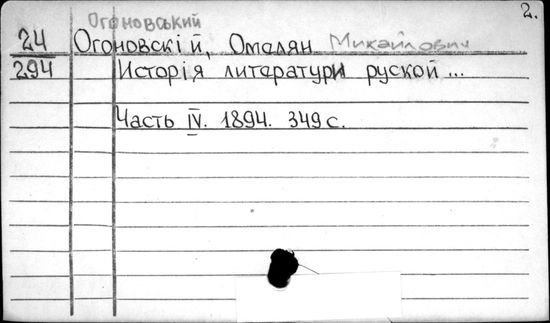 2.
Огоновський
24 Огоновскій, Омалян Михайлович
294 Исторія литератури руской ...
Часть IV. 1894. 349 с.